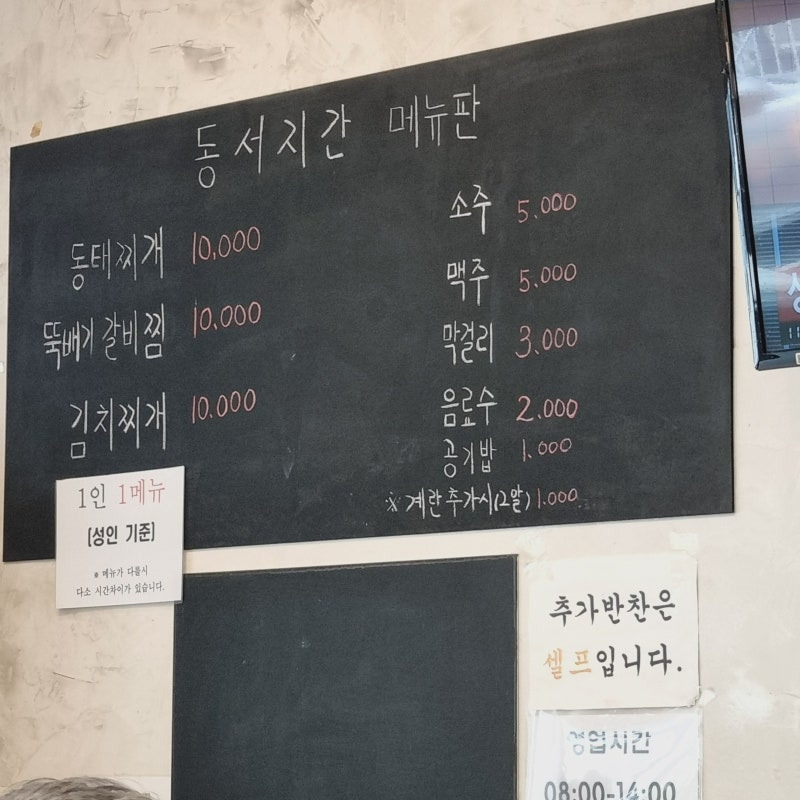 동서지간 메뉴판
동태찌개 10,000
뚝배기 갈비찜 10.000
김치찌개 10.000
소주 5.000
맥주 5.000
막걸리 3.000
음료수 2.000
공기밥 1.000
※ 계란추가시(2알) 1.000
1인 1메뉴
[성인 기준]
※ 메뉴가 다를시
다소 시간차이가 있습니다.
추가반찬은
셀프입니다.
영업시간
08:00-14:00